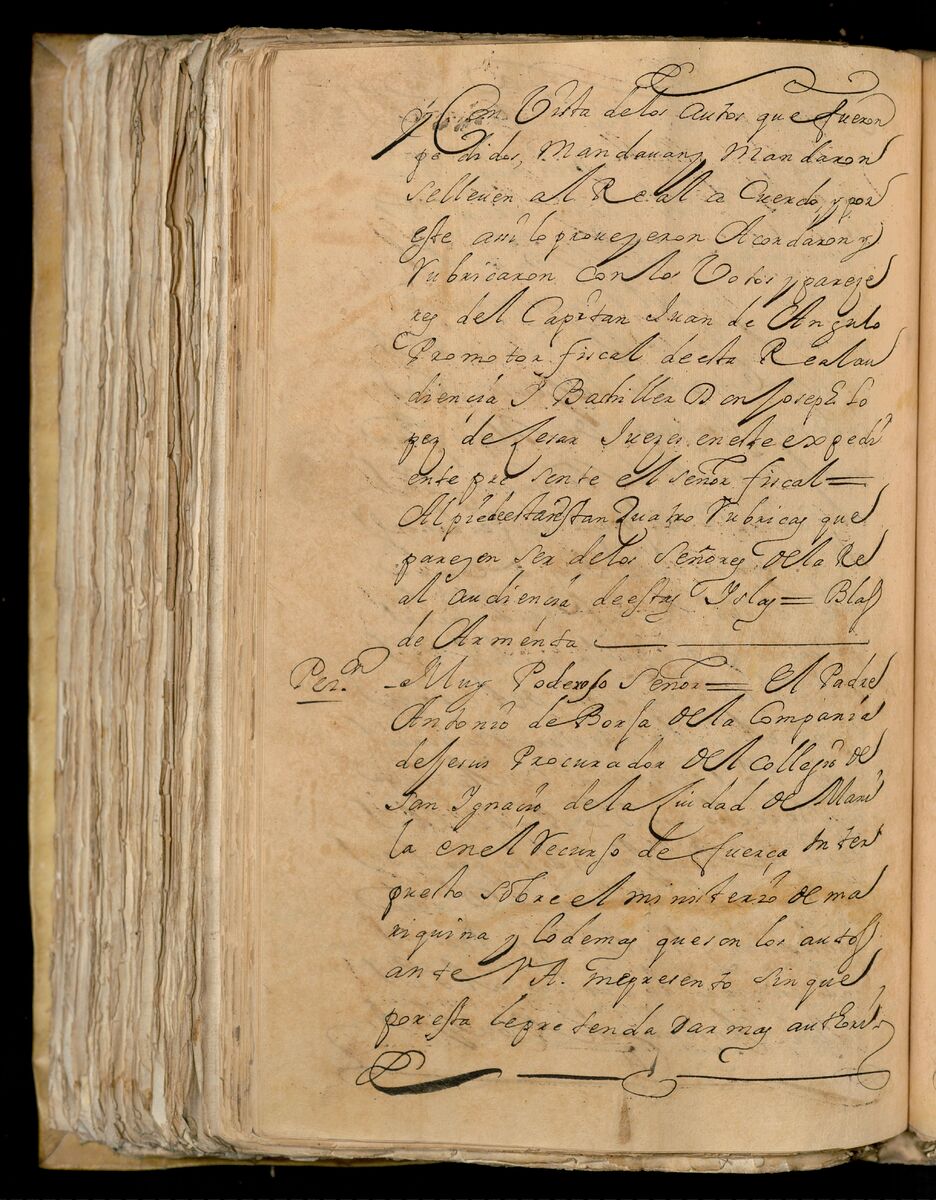 y Con Vista delos autos que fueron
pedidos, Mandauan y Mandaron
selleuen al Reall aCuerdo, y por
este assi lo proueyeron Acordaron y
Rubricaron con los Votos y pareze
res del Capitan Juan de Angulo
Promotor fiscal desta Real au
diencia I Bachiller Don Joseph Lo
pez de Sesar Juezes eneste expedi
ente presente el señor fiscal =
Al pie estan Quatro Rubricas que
parezen ser delos señores de la Re
al audiencia de estas Islas = Blas
de Armenta
Pet.on
Muy Poderoso Señor = el Padre
Antonio de Borja de la Compania
de Jesus Procurador del Collegio de
san Ignacio de la Ciudad de Mani
la en el Recurso de fuerça Inter
puesto sobre el ministerio de ma
riquina y lo demas que son los autos
ante V.A. me presento sin que
por esta le pretenda dar mas authori